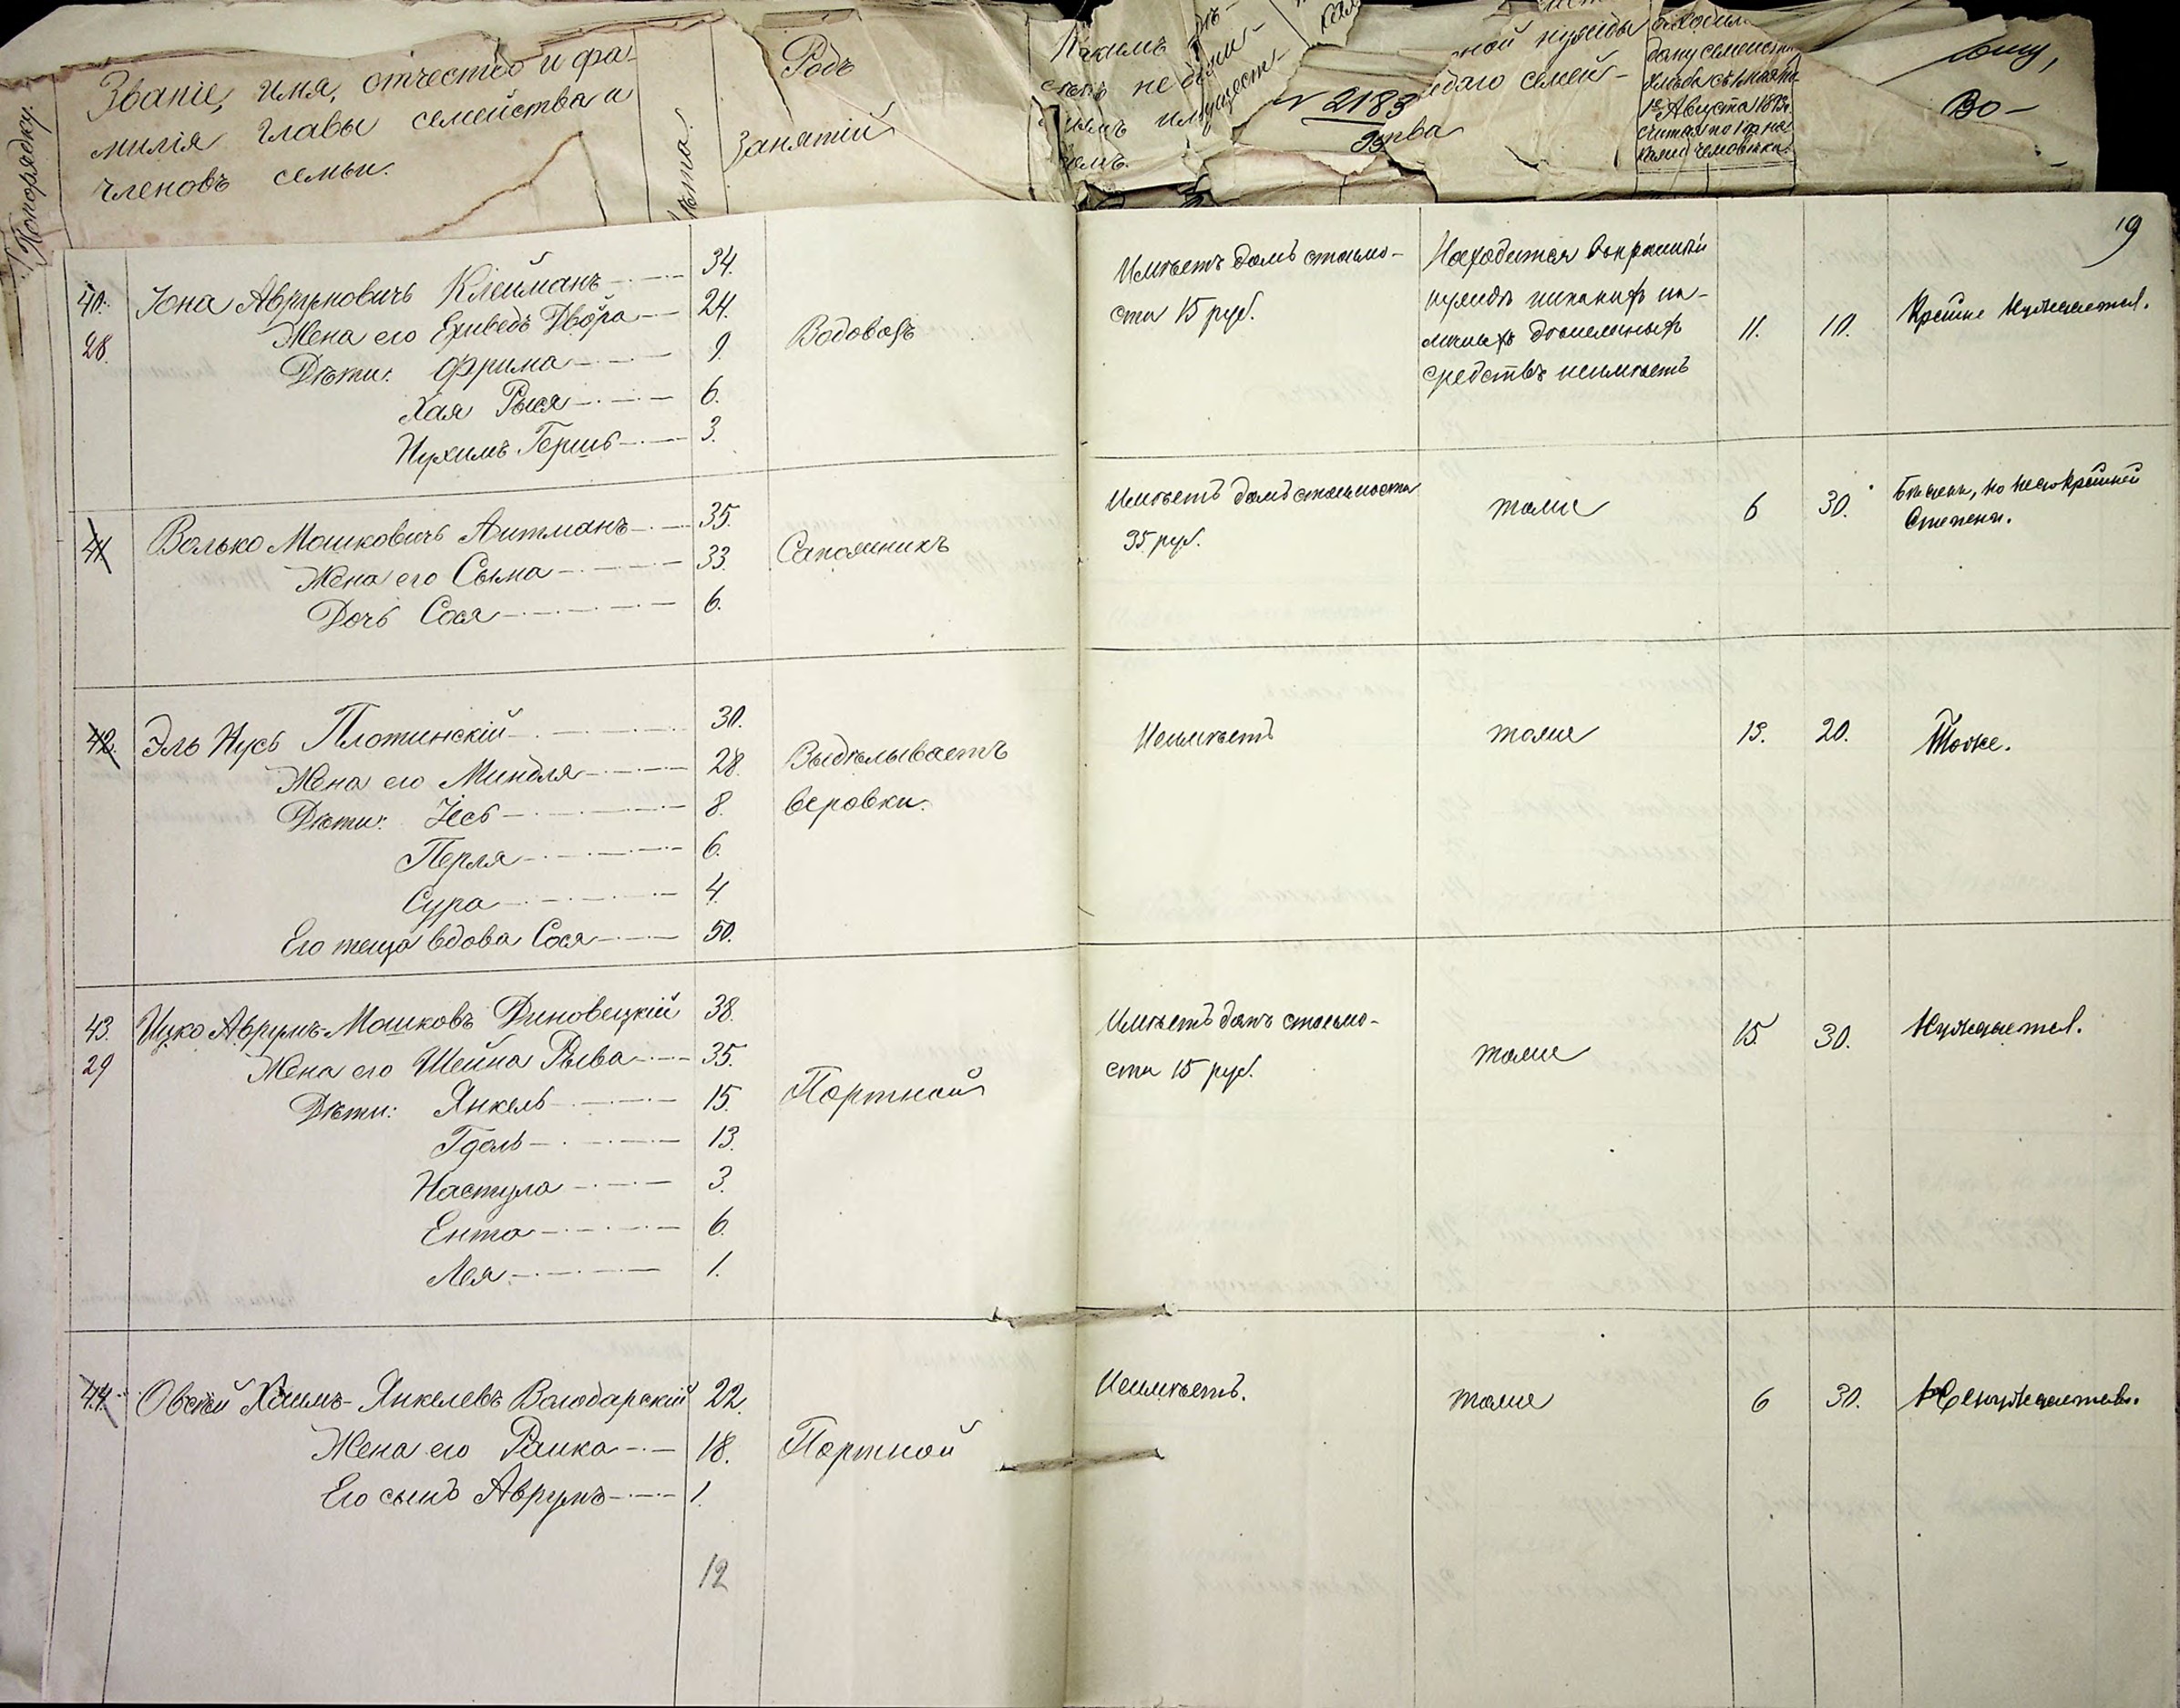 Попорядку.
Званіе, имя, отчество и фа-
милія главы семейства и
членовъ семьи.
Лѣта.
Родъ
занятій
Какимъ
не движи-
имуществ-
№ 2183
ной нужды
каждаго семей-
ства
дому семейств
хлѣба съ
1е Августа
считая по 1 п на
человѣка.
Во-
19
40. Іона Аврумовичъ Клейманъ 34.
28. Жена его Ехиведъ Двора 24.
Дѣти: Фрима 9
Хая Рыся 6.
Нухимъ Гершь 3.
Водовозъ
Имѣетъ домъ стоимо-
сти 15 руб.
Находится вкрайней
нуждѣ никакихъ на-
личныхъ денежныхъ
средствъ неимѣетъ
11. 10. Крайне нуждается.
41 Волько Мошковичъ Аитманъ 35.
Жена его Сыма 33.
Дочь Сося 6.
Сапожникъ
Имѣетъ домъ стоимости
35 руб.
тоже 6 30. Бѣдень, но не въ крайней
Степени.
42. Эль Нусь Плотинскій 30.
Жена его Миндля 28.
Дѣти: Іесь 8.
Перля 6.
Сура 4.
Его теща вдова Сося 50.
Выдѣлываетъ
веровки.
Неимѣетъ
тоже 13. 20. Тоже.
43. Ицко Аврумъ-Мошковъ Диновецкій 38.
29 Жена его Шейна Рыва 35.
Дѣти: Янкель 15.
Гдаль 13.
Настула 3.
Ента 6.
Лея 1.
Портной
Имѣетъ домъ стоимо-
сти 15 руб.
тоже 15. 30. Нуждается.
44. Овсѣй Хаимъ-Янкелевъ Володарскій 22.
Жена его Раика 18.
Его сынъ Аврумъ 1.
Портной
Неимѣетъ.
тоже 6 30. Ненуждается.
12